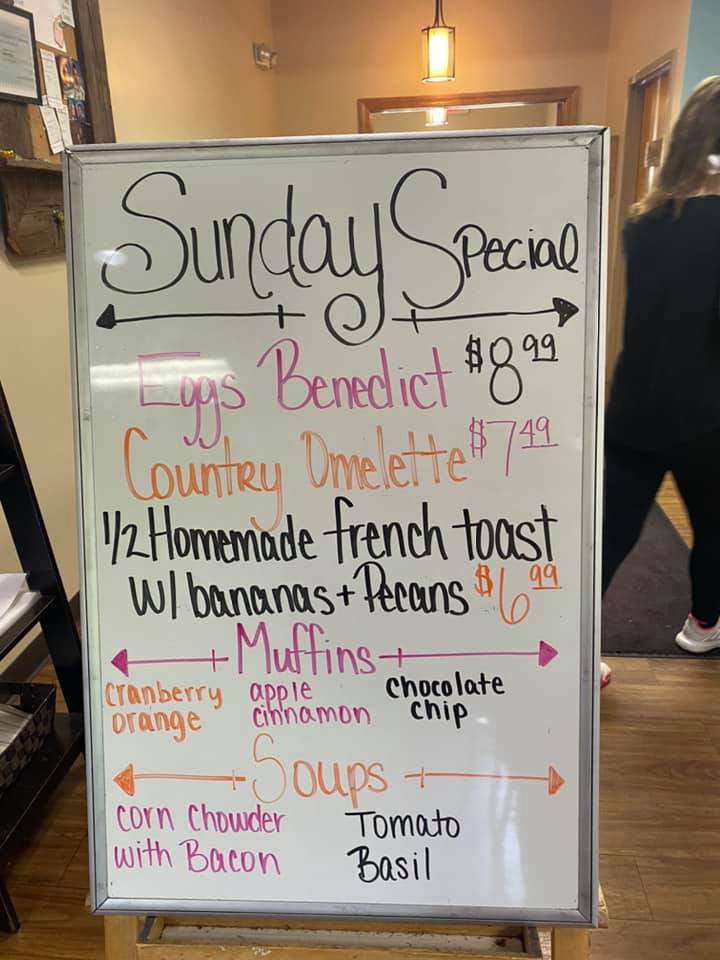 Sunday Special
Eggs Benedict $8.99
Country Omelette $7.49
1/2 Homemade french toast
w/ bananas + Pecans $6.99
Muffins
cranberry orange
apple cinnamon
chocolate chip
Soups
corn chowder with Bacon
Tomato Basil